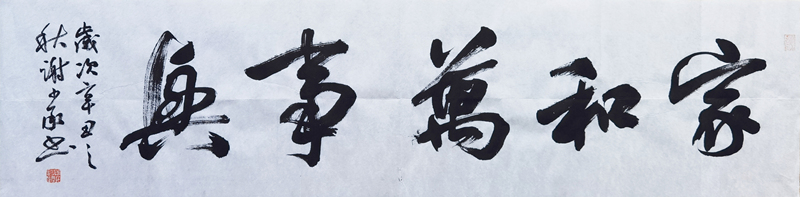 家和萬事興
歲次辛丑之
秋謝少承书